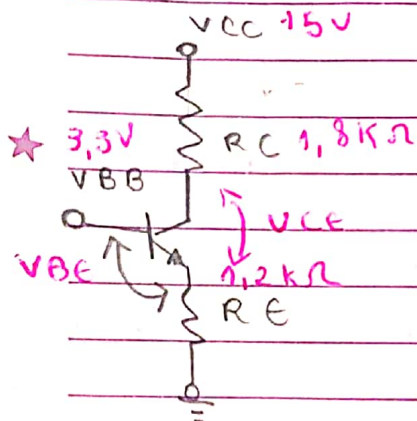 VCC 15V
3,3V RC 1,8KΩ
VBB
VCE
VBE 1,2kΩ
RE